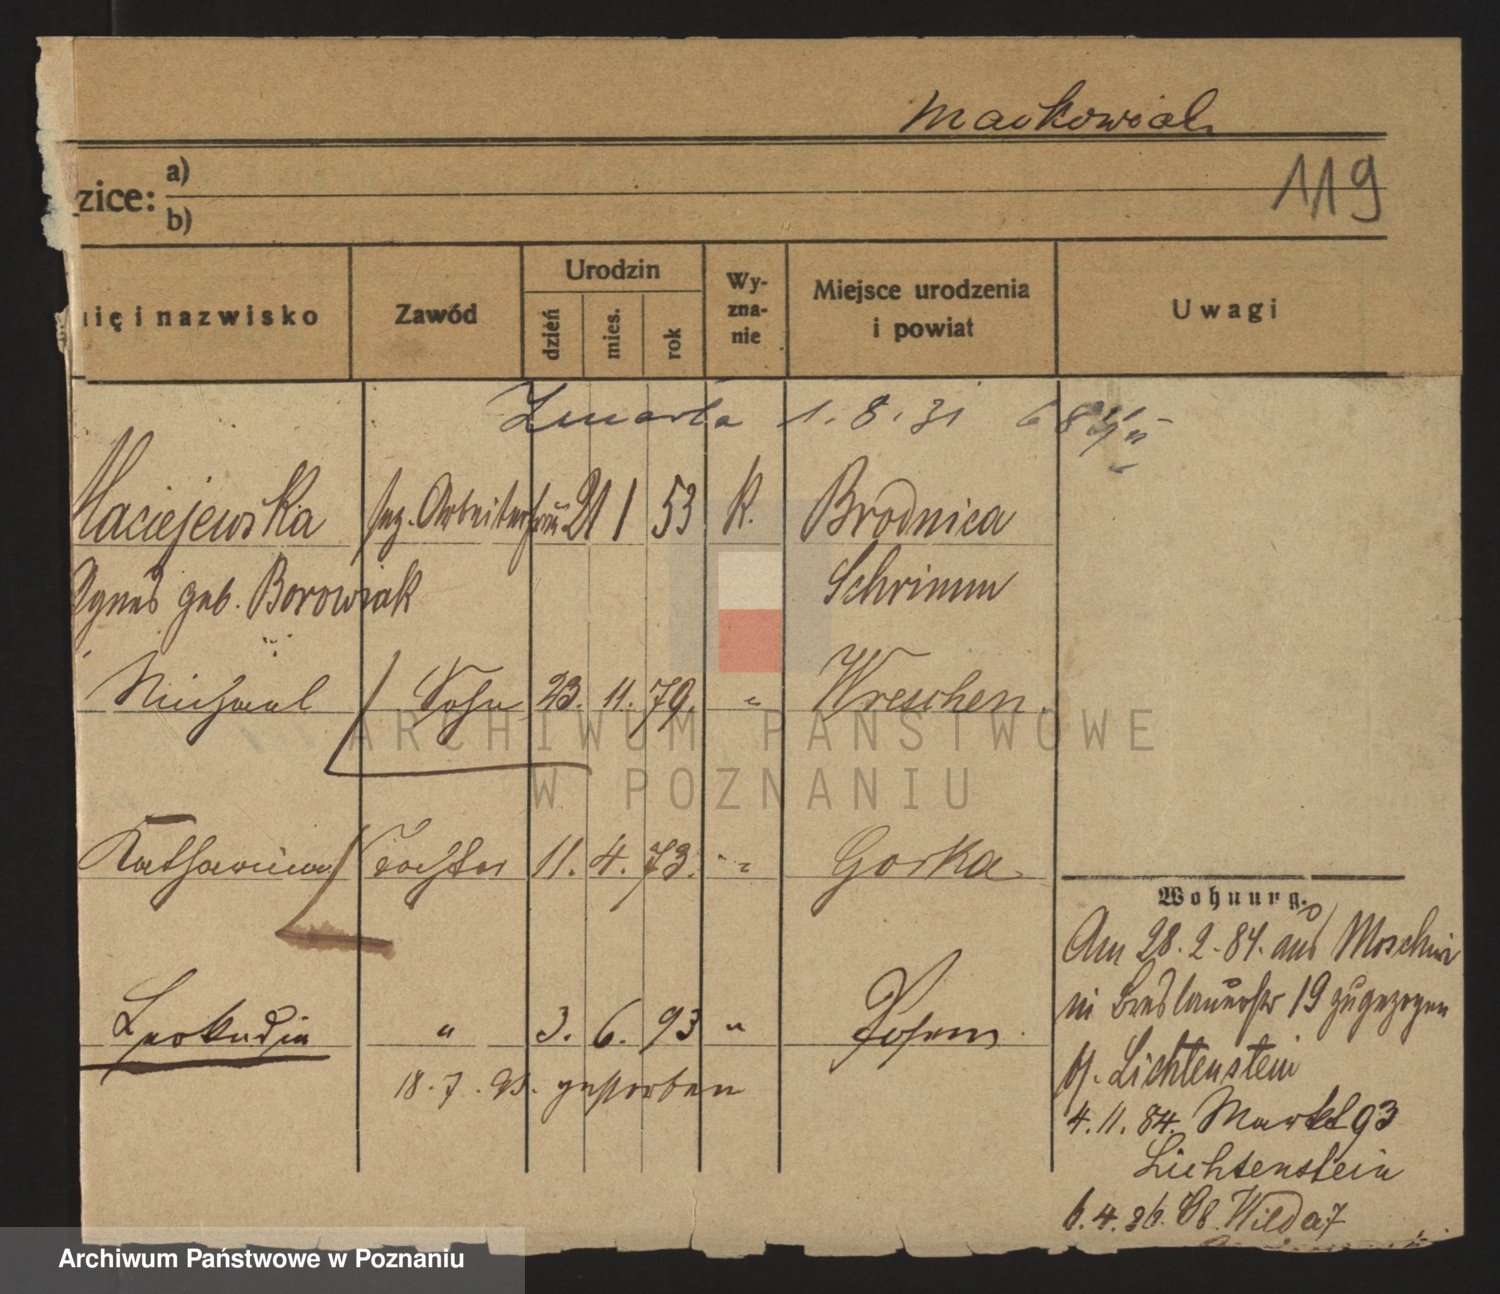 Maćkowiak
119
zice:
a)
b)
ię i nazwisko
Zawód
Urodzin
dzień
mies.
rok
Wy-
zna-
nie
Miejsce urodzenia
i powiat
Uwagi
Zmarła 1.8.31
Maciejewska Arbeiterfrau 21 1 53 K. Brodnica
Agnes geb. Borowiak Schrimm
Michael Sohn 23. 11. 79. " Wreschen.
Katharina Tochter 11. 4. 73. " Gorka
Leokadia " 3. 6. 93 " Posen
18. 7. 93. gestorben
Wohnung.
Am 28.2.84. aus Moschin
in Breslauerstr 19 zugezogen
bei Lichtenstein
4.11.84. Markt 93
Lichtenstein
6.4.86. Ob. Wilda 7
ARCHIWUM PAŃSTWOWE
W POZNANIU
Archiwum Państwowe w Poznaniu